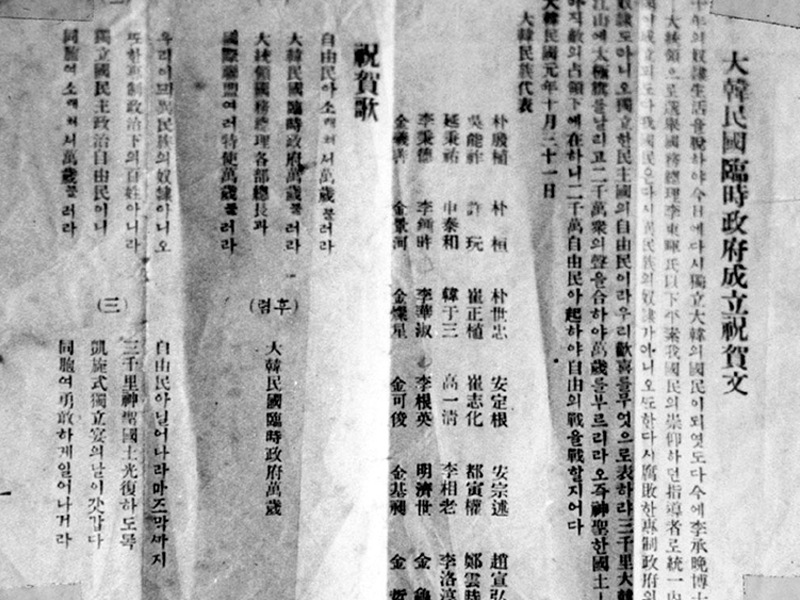 大韓民國臨時政府成立祝賀文
十年의奴隸生活을脫하야今日에다시獨立大韓의國民이되엿도다今에李承晩博士
大統領으로選擧國務總理李東輝氏以下平素我國民의崇仰하던指導者로統一內
成立되도다我國民은다시異民族의奴隸가아니오또한다시腐敗한專制政府의
奴隸도아니오獨立한民主國의自由民이라우리歡喜를무엇으로表하랴三千里大韓
江山에太極旗를날리고二千萬衆의聲을合하야萬歲를부르리라오즉神聖한國土
아직敵의占領下에在하니二千萬自由民아起하야自由의戰을戰할지어다
大韓民國元年十月三十一日
大韓民族代表
朴殷植 朴桓 朴世忠 安定根 安宗述 趙宣弘
吳能祚 許玩 崔正植 崔志化 都寅權 鄭雲時
延秉祐 申泰和 韓于三 高一淸 李相老 李洛淳
李秉德 李鍾旿 李華淑 李根英 明濟世 金
金義善 金景河 金燦星 金可俊 金基昶 金
祝賀歌
自由民아소래쳐서萬歲불러라
大韓民國臨時政府萬歲불러라
大統領國務總理各部總長과
國際聯盟여러特使萬歲불러라
(후렴)
大韓民國臨時政府萬歲
우리이미異民族의奴隸아니오
또한專制政治下의百姓아니라
獨立國民主政治自由民이니
同胞여소래쳐서萬歲불러라
(三)
自由民아닐어나라마즈막까지
三千里神聖國土光復하도록
凱旋式獨立宴의날이갓갑다
同胞여勇敢하게일어나거라